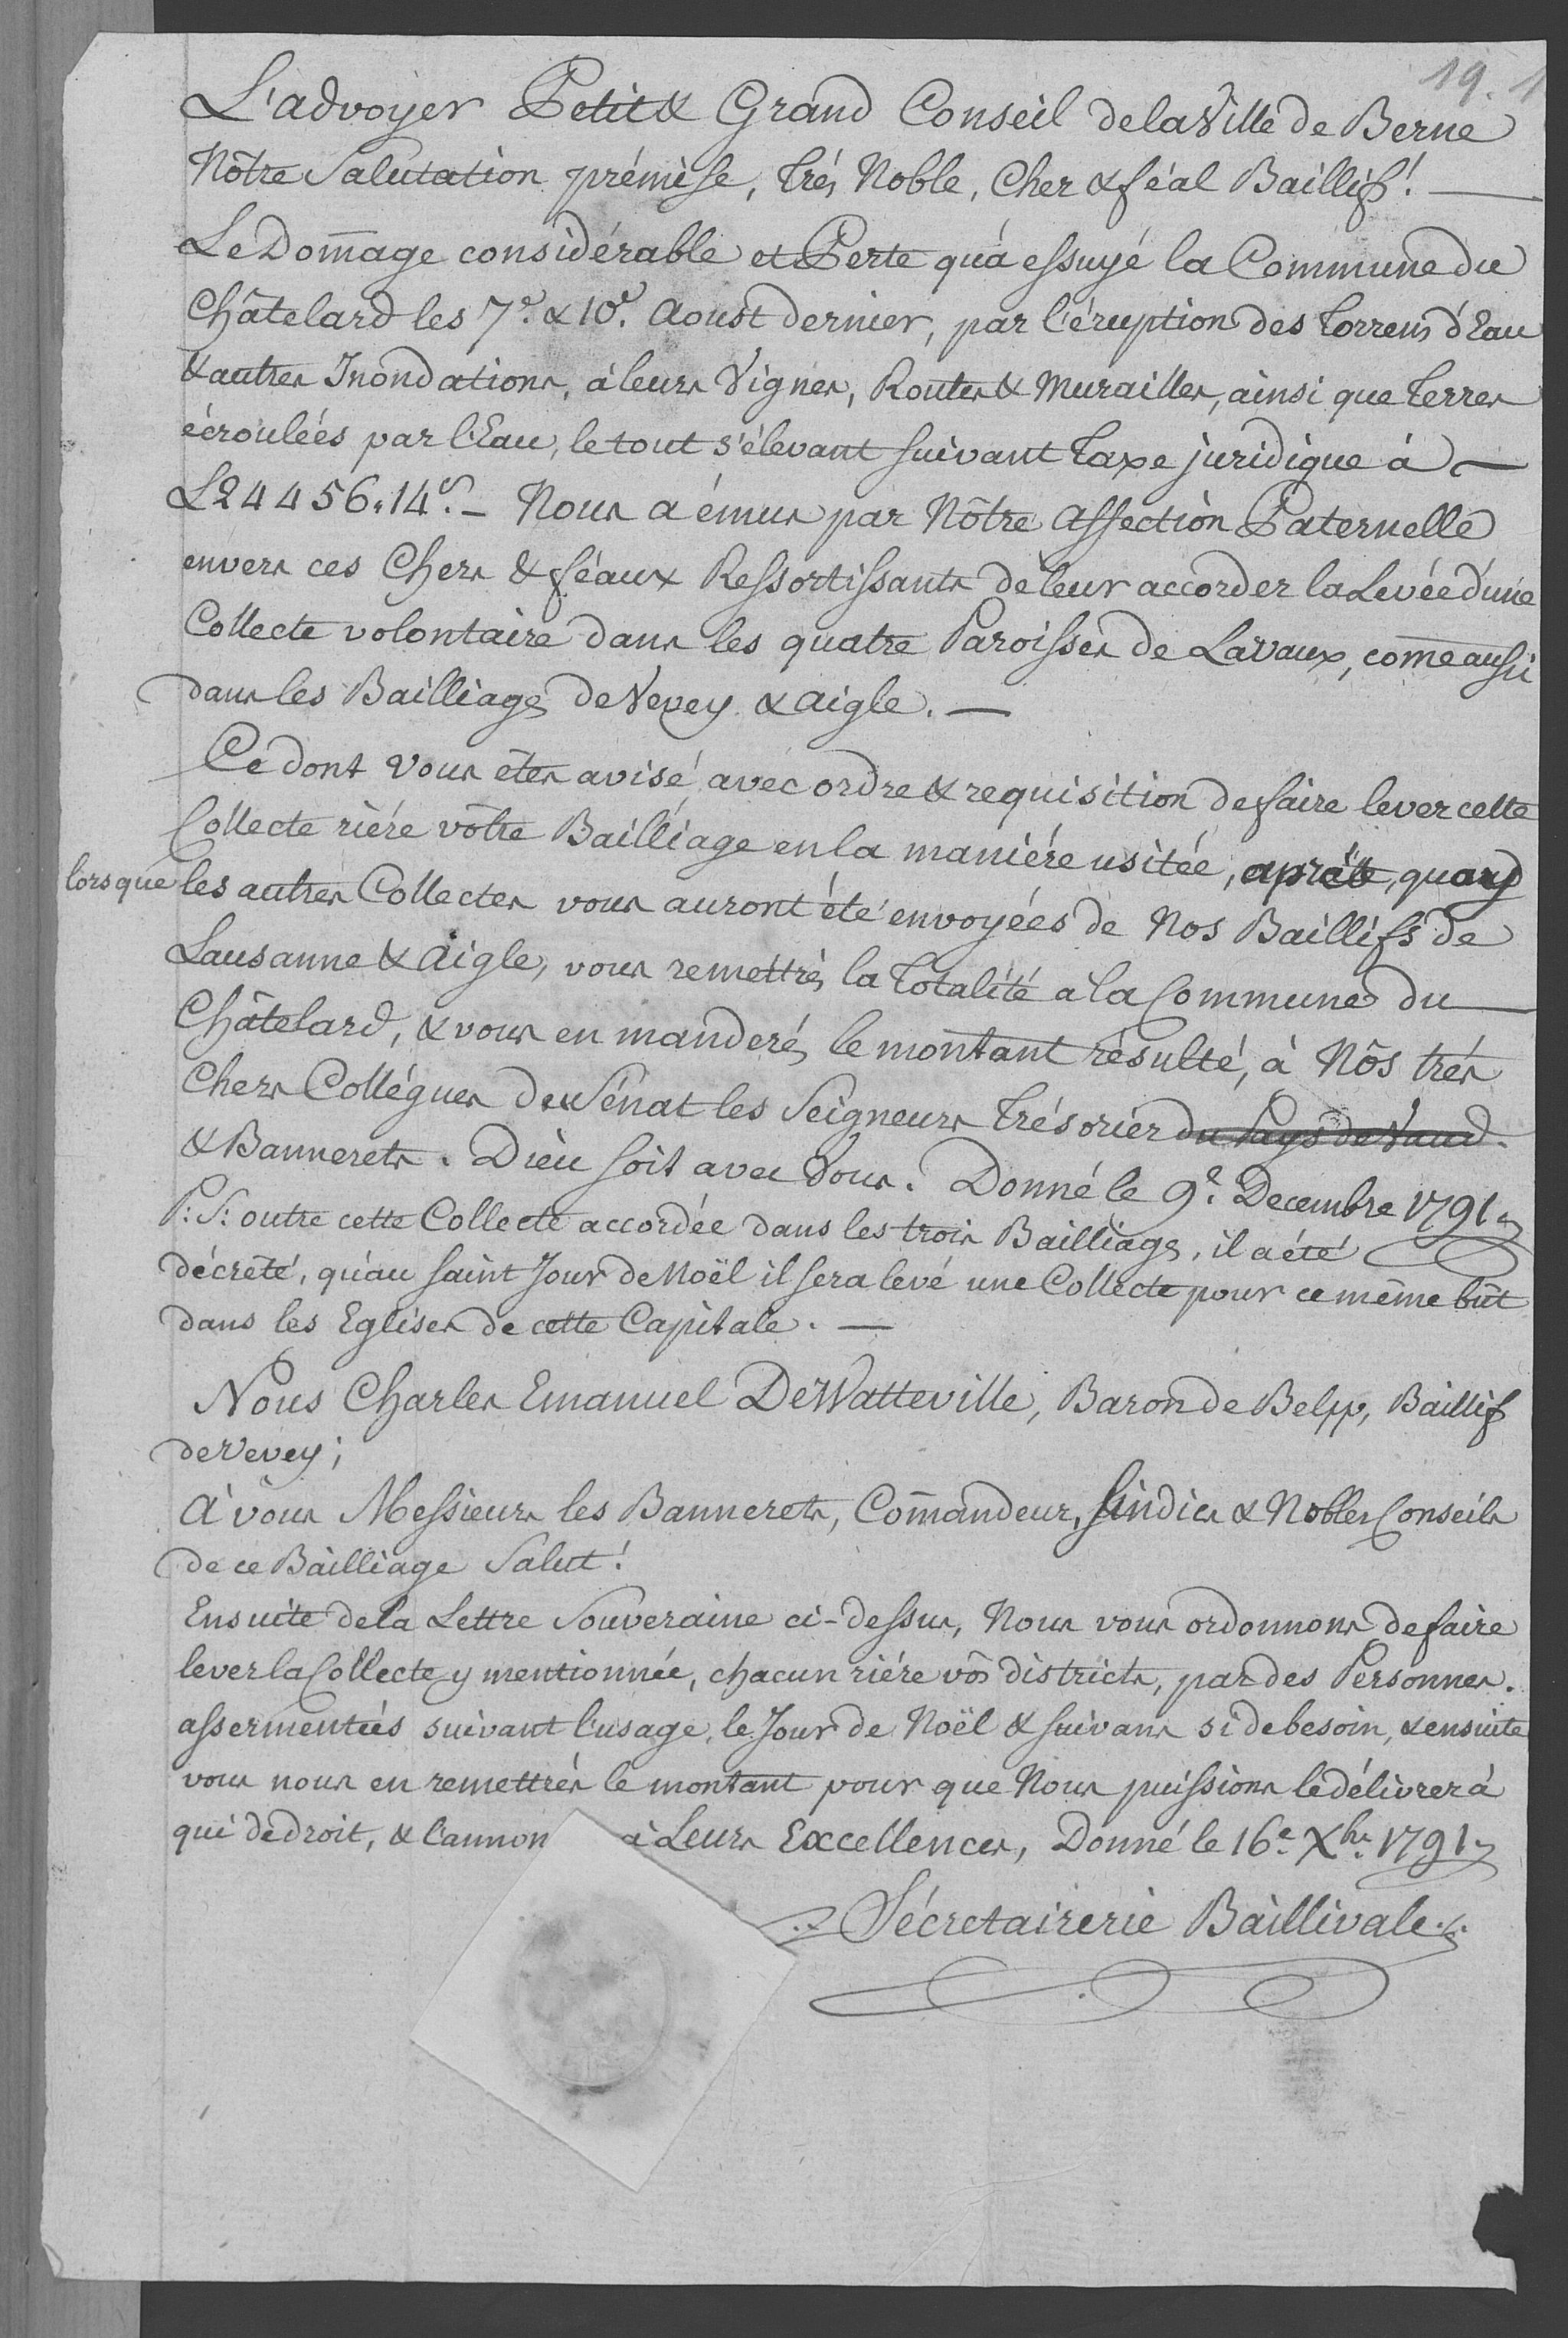 19. 1
L'advoyer Petit & Grand Conseil de la Ville de Berne
Nôtre Salutation prémise, trés Noble, Cher & féal Baillif! —
Le Dom̄age considérable et Perte qu'a essuyé la Commune du
Châtelard les 7e. & 10e. Aoust dernier, par l'éruption des Torrens d'Eau
& autres Inondations, à leurs Vignes, Routes & Murailles, ainsi que terres
écroulées par l'Eau, le tout s'élevant suivant Taxe juridique à —
L 24456.14s. — Nous a émus par Nôtre Affection Paternelle
envers ces Chers & féaux Ressortissants de leur accorder la Levée d'une
Collecte volontaire dans les quatre Paroisses de Lavaux, com̄e aussi
dans les Bailliages de Vevey & Aigle. —
Ce dont vous êtes avisé avec ordre & requisition de faire lever cette
Collecte riére vôtre Bailliage en la maniére usitée, après, quand
lorsque les autres Collectes vous auront été envoyées de Nos Baillifs de
Lausanne & Aigle, vous remettrés la Totalité à la Commune du —
Châtelard, & vous en manderés le montant résulté, à Nôs trés
Chers Collégues du Sénat les Seigneurs Trésorier du Pays de Vaud
& Bannerets. Dieu soit avec Vous. Donné le 9e. Decembre 1791.
P: S: outre cette Collecte accordée dans les trois Bailliages, il a été
décrété, qu'au saint Jour de Noël il sera levé une Collecte pour ce même bût
dans les Eglises de cette Capitale. —
Nous Charles Emanuel De Watteville, Baron de Belpp, Baillif
de Vevey;
A vous Messieurs les Bannerets, Com̄andeur, Sindics & Nobles Conseils
de ce Bailliage Salut!
Ensuite de la Lettre Souveraine ci-dessus, Nous vous ordonnons de faire
lever la Collecte y mentionnée, chacun riére vôs districts, par des Personnes
assermentées suivant l'usage, le Jour de Noël & suivans si de besoin, & ensuite
vous nous en remettrés le montant pour que Nous puissions le délivrer à
qui de droit, & l'annon à Leurs Excellences, Donné le 16e. Xbre. 1791.
Sécretairerie Baillivale.